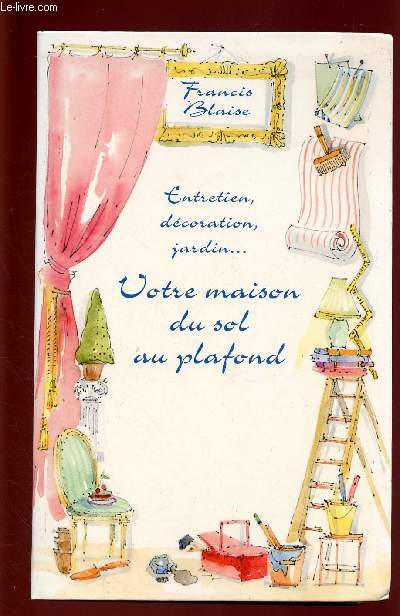 Le-livre.com
Francis
Blaise
Entretien,
décoration,
jardin...
Votre maison
du sol
au plafond